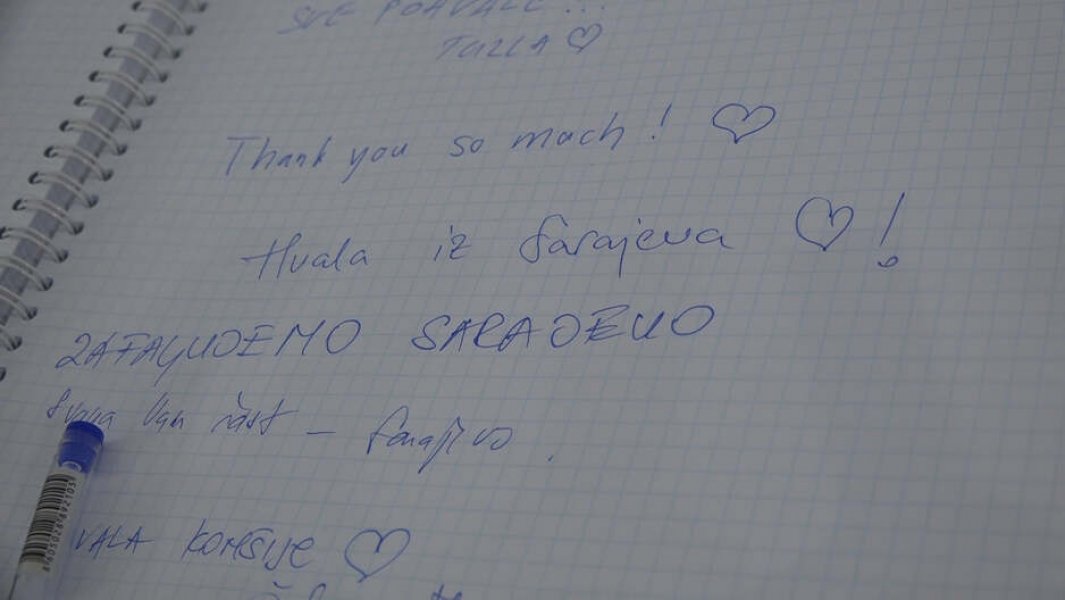 SVE POHVALE...
TUZLA ♡
Thank you so mach! ♡
Hvala iz Sarajeva ♡!
SARAJEVO
Svaka Vam čast - Sarajevo.
VALA KOMŠIJE ♡